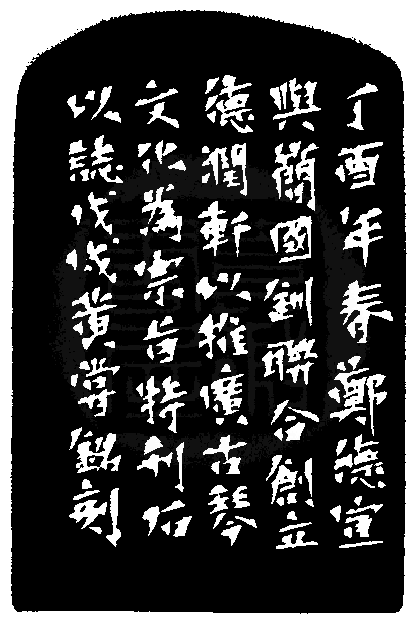 丁酉年春鄭德宣
與簡國釗聯合創立
德潤軒以推廣古琴
文化為宗旨特
以誌戊戌黃嘗銘刻